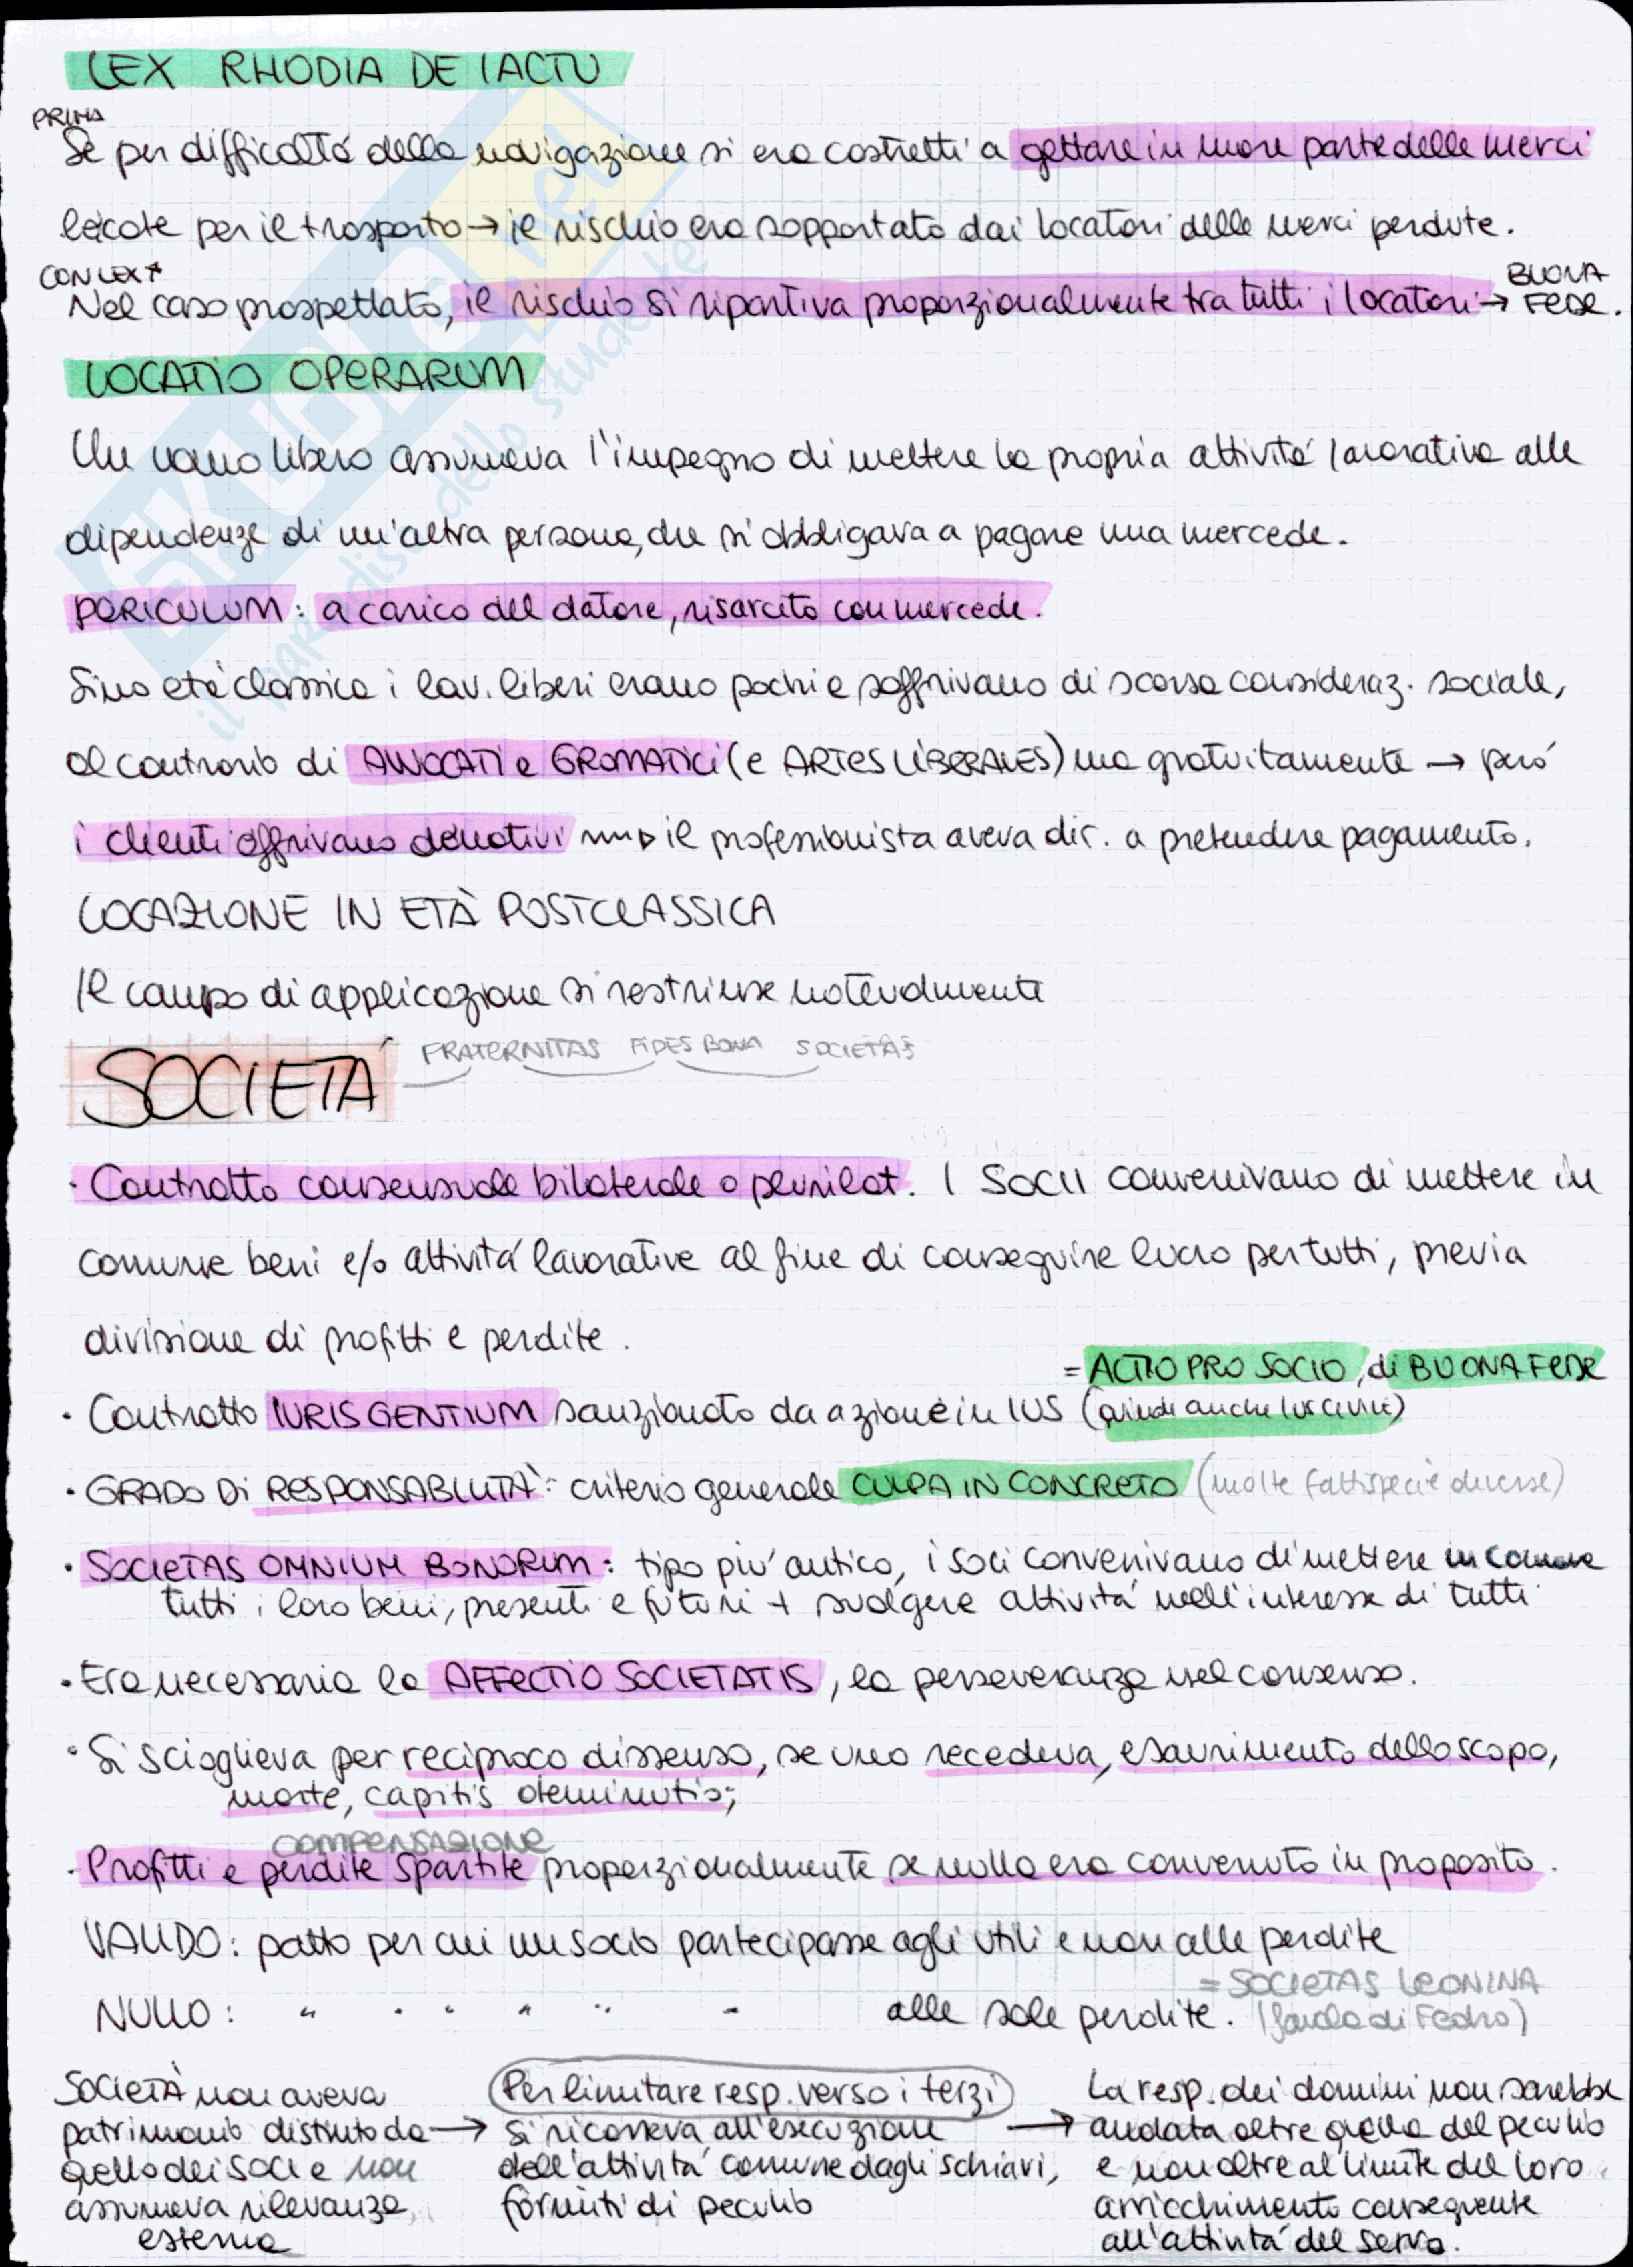 LEX RHODIA DE IACTU
PRIMA
Se per difficoltà della navigazione si era costretti a gettare in mare parte delle merci
locate per il trasporto → il rischio era sopportato dai locatori delle merci perdute.
CON LEX
Nel caso prospettato, il rischio si ripartiva proporzionalmente tra tutti i locatori → BUONA FEDE.
LOCATIO OPERARUM
Un uomo libero assumeva l'impegno di mettere la propria attività lavorativa alle
dipendenze di un'altra persona, che si obbligava a pagare una mercede.
PERICULUM: a carico del datore, risarcito con mercede.
Sino età classica i lav. liberi erano pochi e soffrivano di scarsa consideraz. sociale,
al contrario di AVVOCATI e GROMATICI (e ARTES LIBERALES) ma gratuitamente → però
i clienti offrivano donativi → il professionista aveva dir. a pretendere pagamento.
LOCAZIONE IN ETÀ POSTCLASSICA
Il campo di applicazione si restrinse notevolmente
SOCIETÀ FRATERNITAS FIDES BONA SOCIETAS
· Contratto consensuale bilaterale o plurilat. I SOCII convenivano di mettere in
comune beni e/o attività lavorative al fine di conseguire lucro per tutti, previa
divisione di profitti e perdite.
= ACTIO PRO SOCIO, di BUONA FEDE
· Contratto IURIS GENTIUM sanzionato da azione in IUS (quindi anche ius civile)
· GRADO DI RESPONSABILITÀ: criterio generale CULPA IN CONCRETO (molte fattispecie diverse)
· SOCIETAS OMNIUM BONORUM: tipo più antico, i soci convenivano di mettere in comune
tutti i loro beni, presenti e futuri + svolgere attività nell'interesse di tutti
· Era necessaria la AFFECTIO SOCIETATIS, la perseveranza nel consenso.
· Si scioglieva per reciproco dissenso, se uno recedeva, esaurimento dello scopo,
morte, capitis deminutio;
COMPENSAZIONE
· Profitti e perdite spartite proporzionalmente se nulla era convenuto in proposito.
VALIDO: patto per cui un socio partecipasse agli utili e non alle perdite
= SOCIETAS LEONINA
NULLO: " " " " " " alle sole perdite. (favola di Fedro)
SOCIETÀ non aveva
patrimonio distinto da →
quello dei SOCI e non
assumeva rilevanza
esterna
Per limitare resp. verso i terzi
si ricorreva all'esecuzione →
dell'attività comune dagli schiavi,
forniti di peculio
La resp. dei domini non sarebbe
andata oltre quella del peculio
e non oltre al limite del loro
arricchimento conseguente
all'attività del servo.
SKUOLA.net
il paradiso dello studente